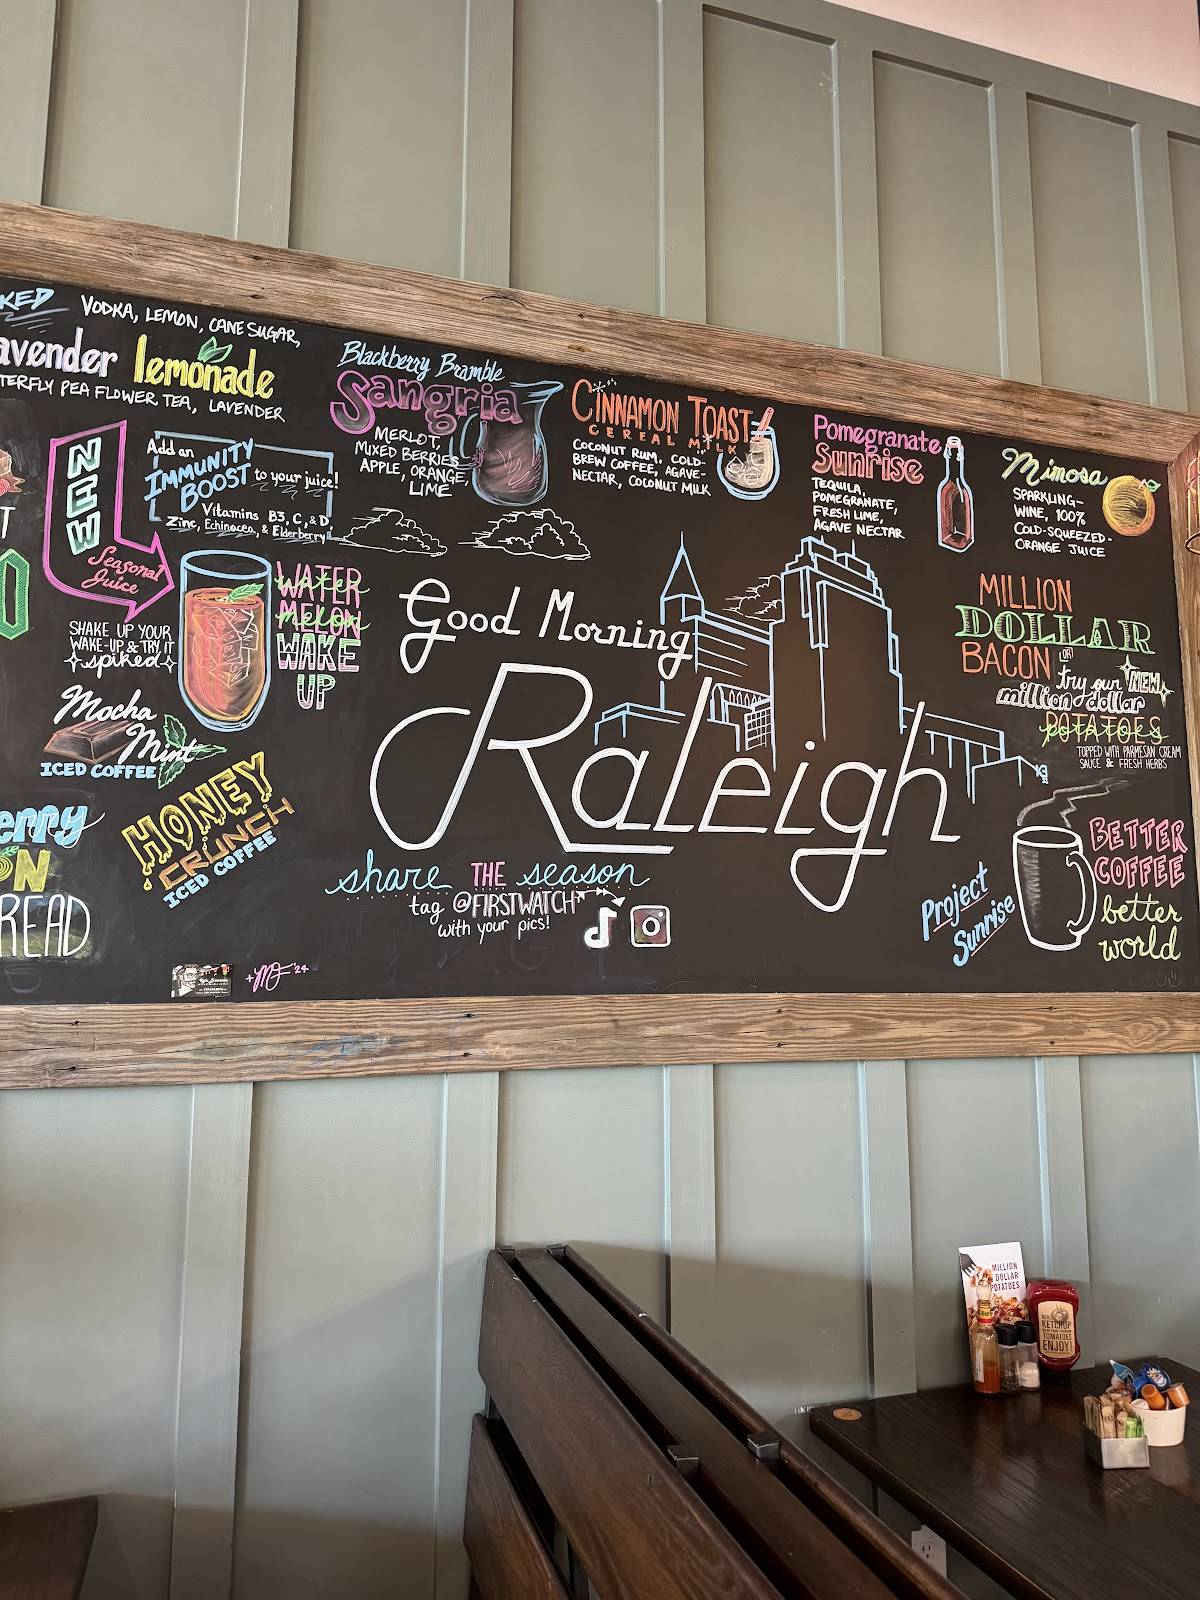 KED
VODKA, LEMON, CANE SUGAR,
avender lemonade
TERFLY PEA FLOWER TEA, LAVENDER
Blackberry Bramble
Sangria
MERLOT,
MIXED BERRIES
APPLE, ORANGE,
LIME
CINNAMON TOAST
CEREAL MILK
COCONUT RUM, COLD-
BREW COFFEE, AGAVE-
NECTAR, COCONUT MILK
Pomegranate
Sunrise
TEQUILA,
POMEGRANATE,
FRESH LIME,
AGAVE NECTAR
Mimosa
SPARKLING-
WINE, 100%
COLD-SQUEEZED-
ORANGE JUICE
NEW
Seasonal
Juice
Add an
IMMUNITY
BOOST to your juice!
Vitamins B3, C, & D,
Zinc, Echinacea, & Elderberry!
SHAKE UP YOUR
WAKE-UP & TRY IT
spiked
WATER
MELON
WAKE
UP
Mocha
Mint
ICED COFFEE
HONEY
CRUNCH
ICED COFFEE
erry
ON
READ
Good Morning
Raleigh
MILLION
DOLLAR
BACON OR
try our NEW
million dollar
POTATOES
TOPPED WITH PARMESAN CREAM
SAUCE & FRESH HERBS
share THE season
tag @FIRSTWATCH
with your pics!
Project
Sunrise
BETTER
COFFEE
better
world
'24
MILLION
DOLLAR
POTATOES
KETCHUP
TOMATOES
ENJOY!